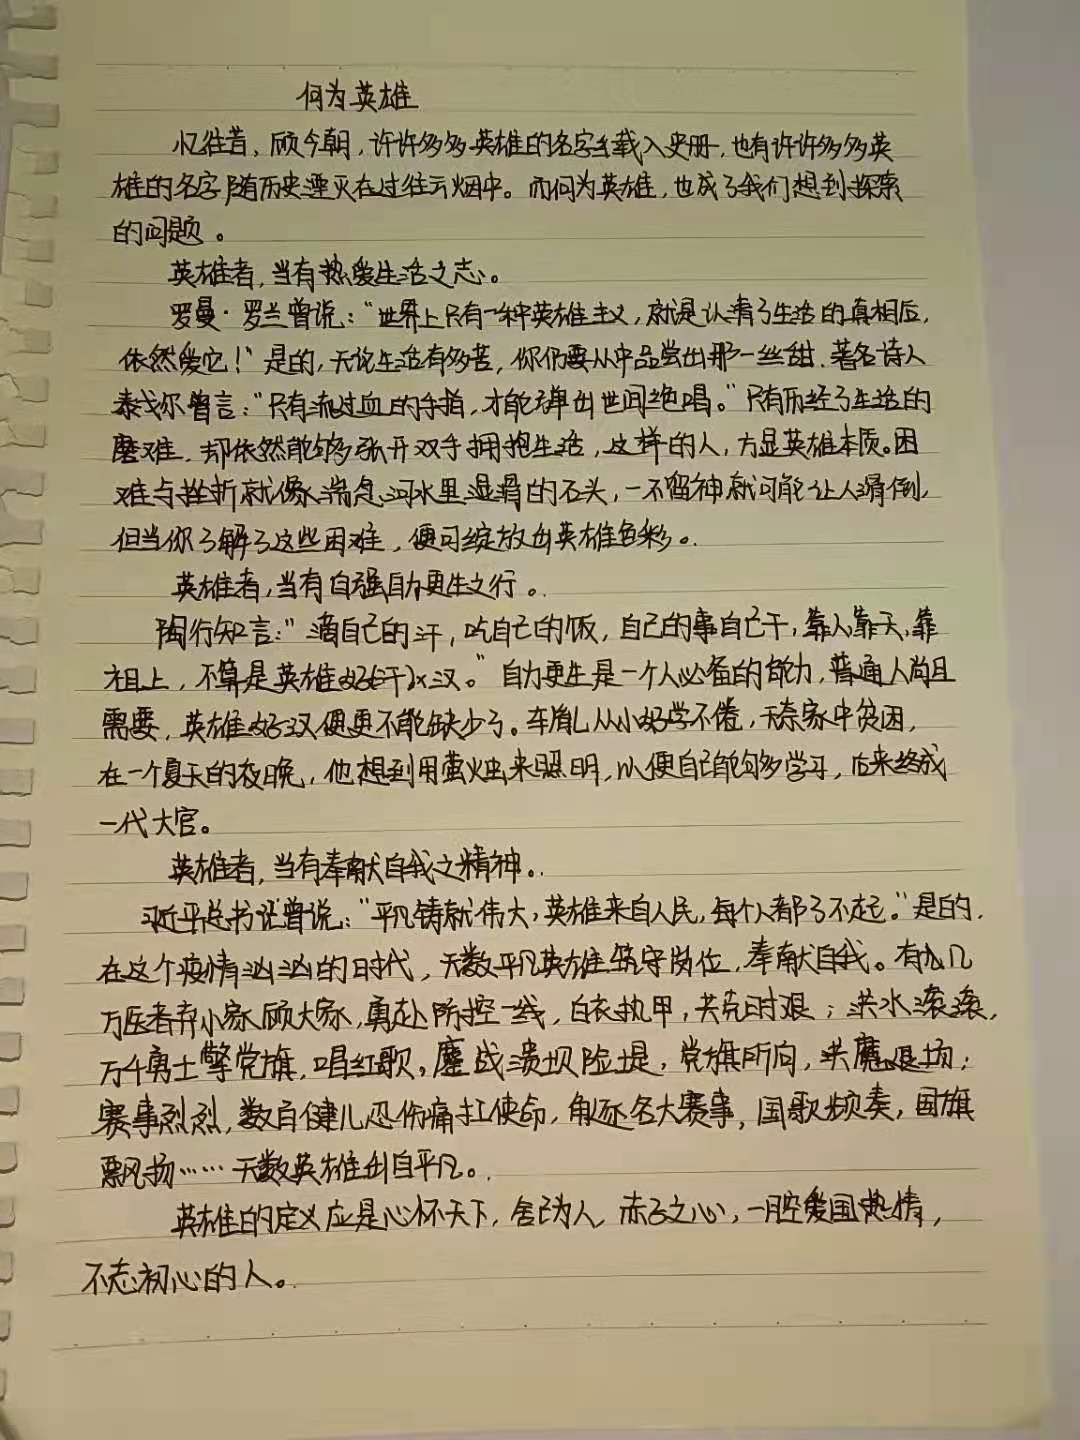 何为英雄
忆往昔，顾今朝，许许多多英雄的名字载入史册，也有许许多多英
雄的名字随历史湮灭在过往云烟中。而何为英雄，也成了我们想到探索
的问题。
英雄者，当有热爱生活之志。
罗曼·罗兰曾说：“世界上只有一种英雄主义，就是认清了生活的真相后，
依然爱它！”是的，无论生活有多苦，你仍要从中品尝出那一丝甜．著名诗人
泰戈尔曾言：“只有流过血的手指，才能弹出世间绝唱。”只有历经了生活的
磨难，却依然能够张开双手拥抱生活，这样的人，方显英雄本质。困
难与挫折就像湍急河水里湿滑的石头，一不留神就可能让人滑倒，
但当你了解了这些困难，便可绽放出英雄色彩。
英雄者，当有自强自力更生之行。
陶行知言：“滴自己的汗，吃自己的饭，自己的事自己干，靠人，靠天，靠
祖上，不算是英雄好汉。”自力更生是一个人必备的能力，普通人尚且
需要，英雄好汉便更不能缺少了。车胤从小好学不倦，无奈家中贫困，
在一个夏天的夜晚，他想到用萤火虫来照明，以便自己能够多学习，后来终成
一代大官。
英雄者，当有奉献自我之精神。
习近平总书记曾说：“平凡铸就伟大，英雄来自人民，每个人都了不起。”是的，
在这个疫情汹汹的时代，无数平凡英雄坚守岗位，奉献自我。有
万医者弃小家顾大家，勇赴防控一线，白衣执甲，共克时艰；洪水滚滚，
万千勇士擎党旗，唱红歌，鏖战溃坝险堤，党旗所向，洪魔退场；
赛事烈烈，数百健儿忍伤痛扛使命，角逐各大赛事，国歌频奏，国旗
飘扬……无数英雄出自平凡。
英雄的定义应是心怀天下，舍己为人，赤子之心，一腔爱国热情，
不忘初心的人。